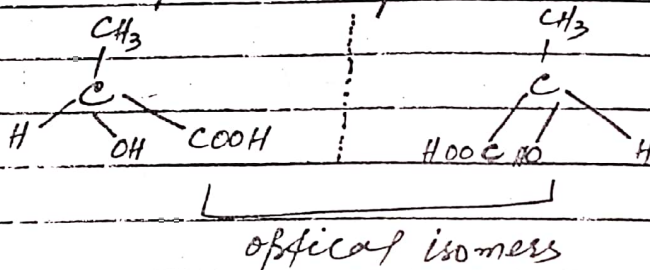 CH3 CH3
C C
H OH COOH HOOC HO H
optical isomers